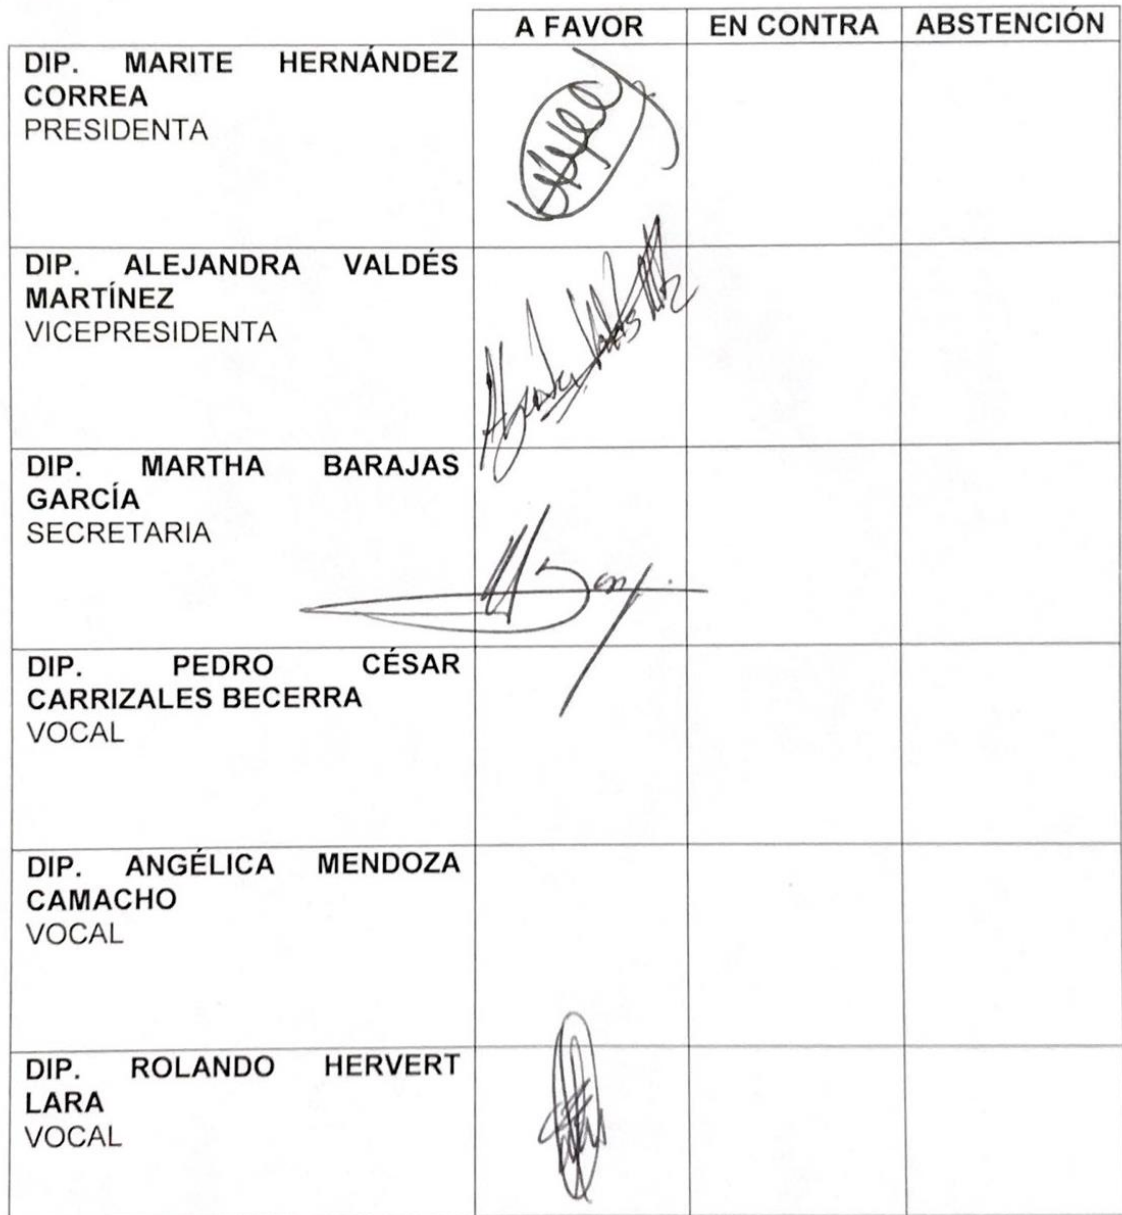 A FAVOR EN CONTRA ABSTENCIÓN
DIP. MARITE HERNÁNDEZ
CORREA
PRESIDENTA
DIP. ALEJANDRA VALDÉS
MARTÍNEZ
VICEPRESIDENTA
DIP. MARTHA BARAJAS
GARCÍA
SECRETARIA
DIP. PEDRO CÉSAR
CARRIZALES BECERRA
VOCAL
DIP. ANGÉLICA MENDOZA
CAMACHO
VOCAL
DIP. ROLANDO HERVERT
LARA
VOCAL